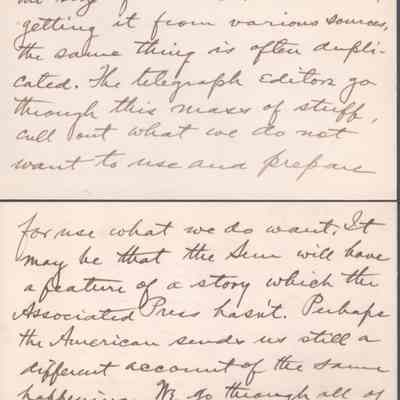 getting it from various sources,
the same thing is often dupli-
cated. The telegraph Editors go
through this mass of stuff,
cull out what we do not
want to use and prepare
for use what we do want. It
may be that the Sun will have
a feature of a story which the
Associated Press hasn't. Perhaps
the American sends us still a
different account of the same
happening. We go through all of